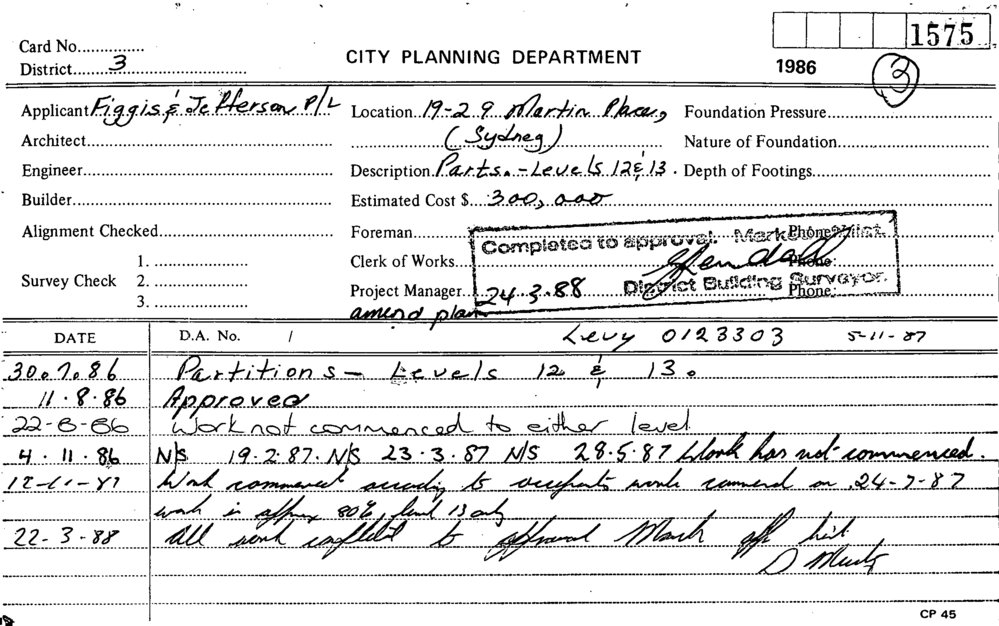 1575
Card No...............
CITY PLANNING DEPARTMENT
District........3
1986
3
Applicant Figgis & Jefferson P/L
Location 19-29 Martin Place,
Foundation Pressure
Architect
(Sydney)
Nature of Foundation
Engineer
Description Parts. - Levels 12 & 13.
Depth of Footings
Builder
Estimated Cost $ 300,000
Alignment Checked
Foreman
Phone:
Completed to approval. Marked off list.
Survey Check
1.
Clerk of Works
Phone:
2.
Project Manager
24.3.88
District Building Surveyor.
Phone:
3.
amend plan
DATE
D.A. No. /
Levy 0123303 5-11-87
30.7.86 Partitions - Levels 12 & 13.
11.8.86 Approved
22-8-86 Work not commenced to either level
4.11.86 N/S 19.2.87. N/S 23.3.87 N/S 28.5.87 Work has not commenced.
12-11-87 Work commenced according to occupants work commend on 24-7-87
work is approx 80%, level 13 only
22-3-88 All work to approval Mark off list
CP 45